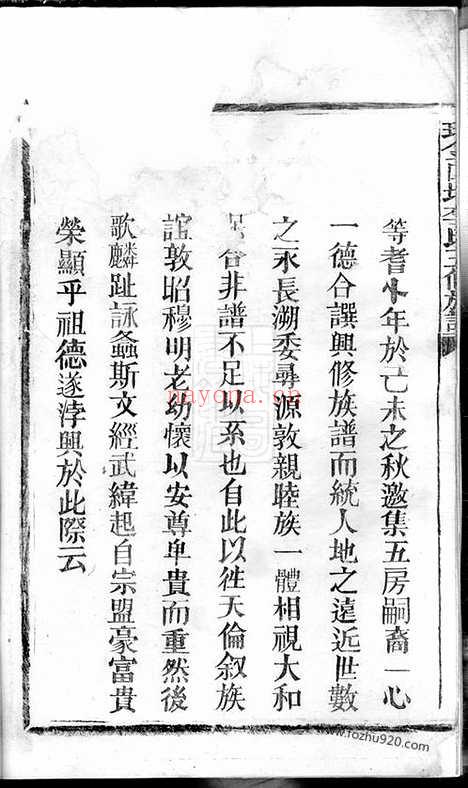 等耆少年於己未之秋邀集五房嗣裔一心
一德合譔興修族譜而統人地之遠近世數
之永長溯委尋源敦親睦族一體相視大和
咎非譜不足以系也自此以徃天倫叙族
誼敦昭穆明老幼懷以安尊卑貴而重然後
歌麟趾詠螽斯文經武緯起自宗盟豪富貴
榮顯乎祖德遂浡興於此際云
修族譜
nayona.cn
www.fozhu920.com